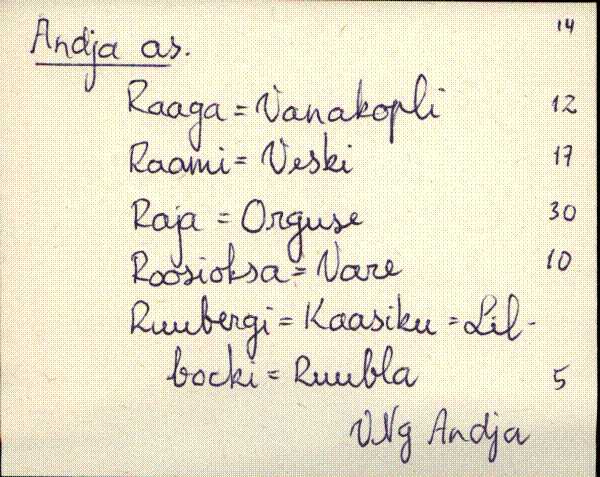 14
Andja as.
Raaga = Vanakopli 12
Raami = Veski 17
Raja = Orguse 30
Roosioksa = Vare 10
Ruubergi = Kaasiku = Lil-
bocki = Ruubla 5
VNg Andja